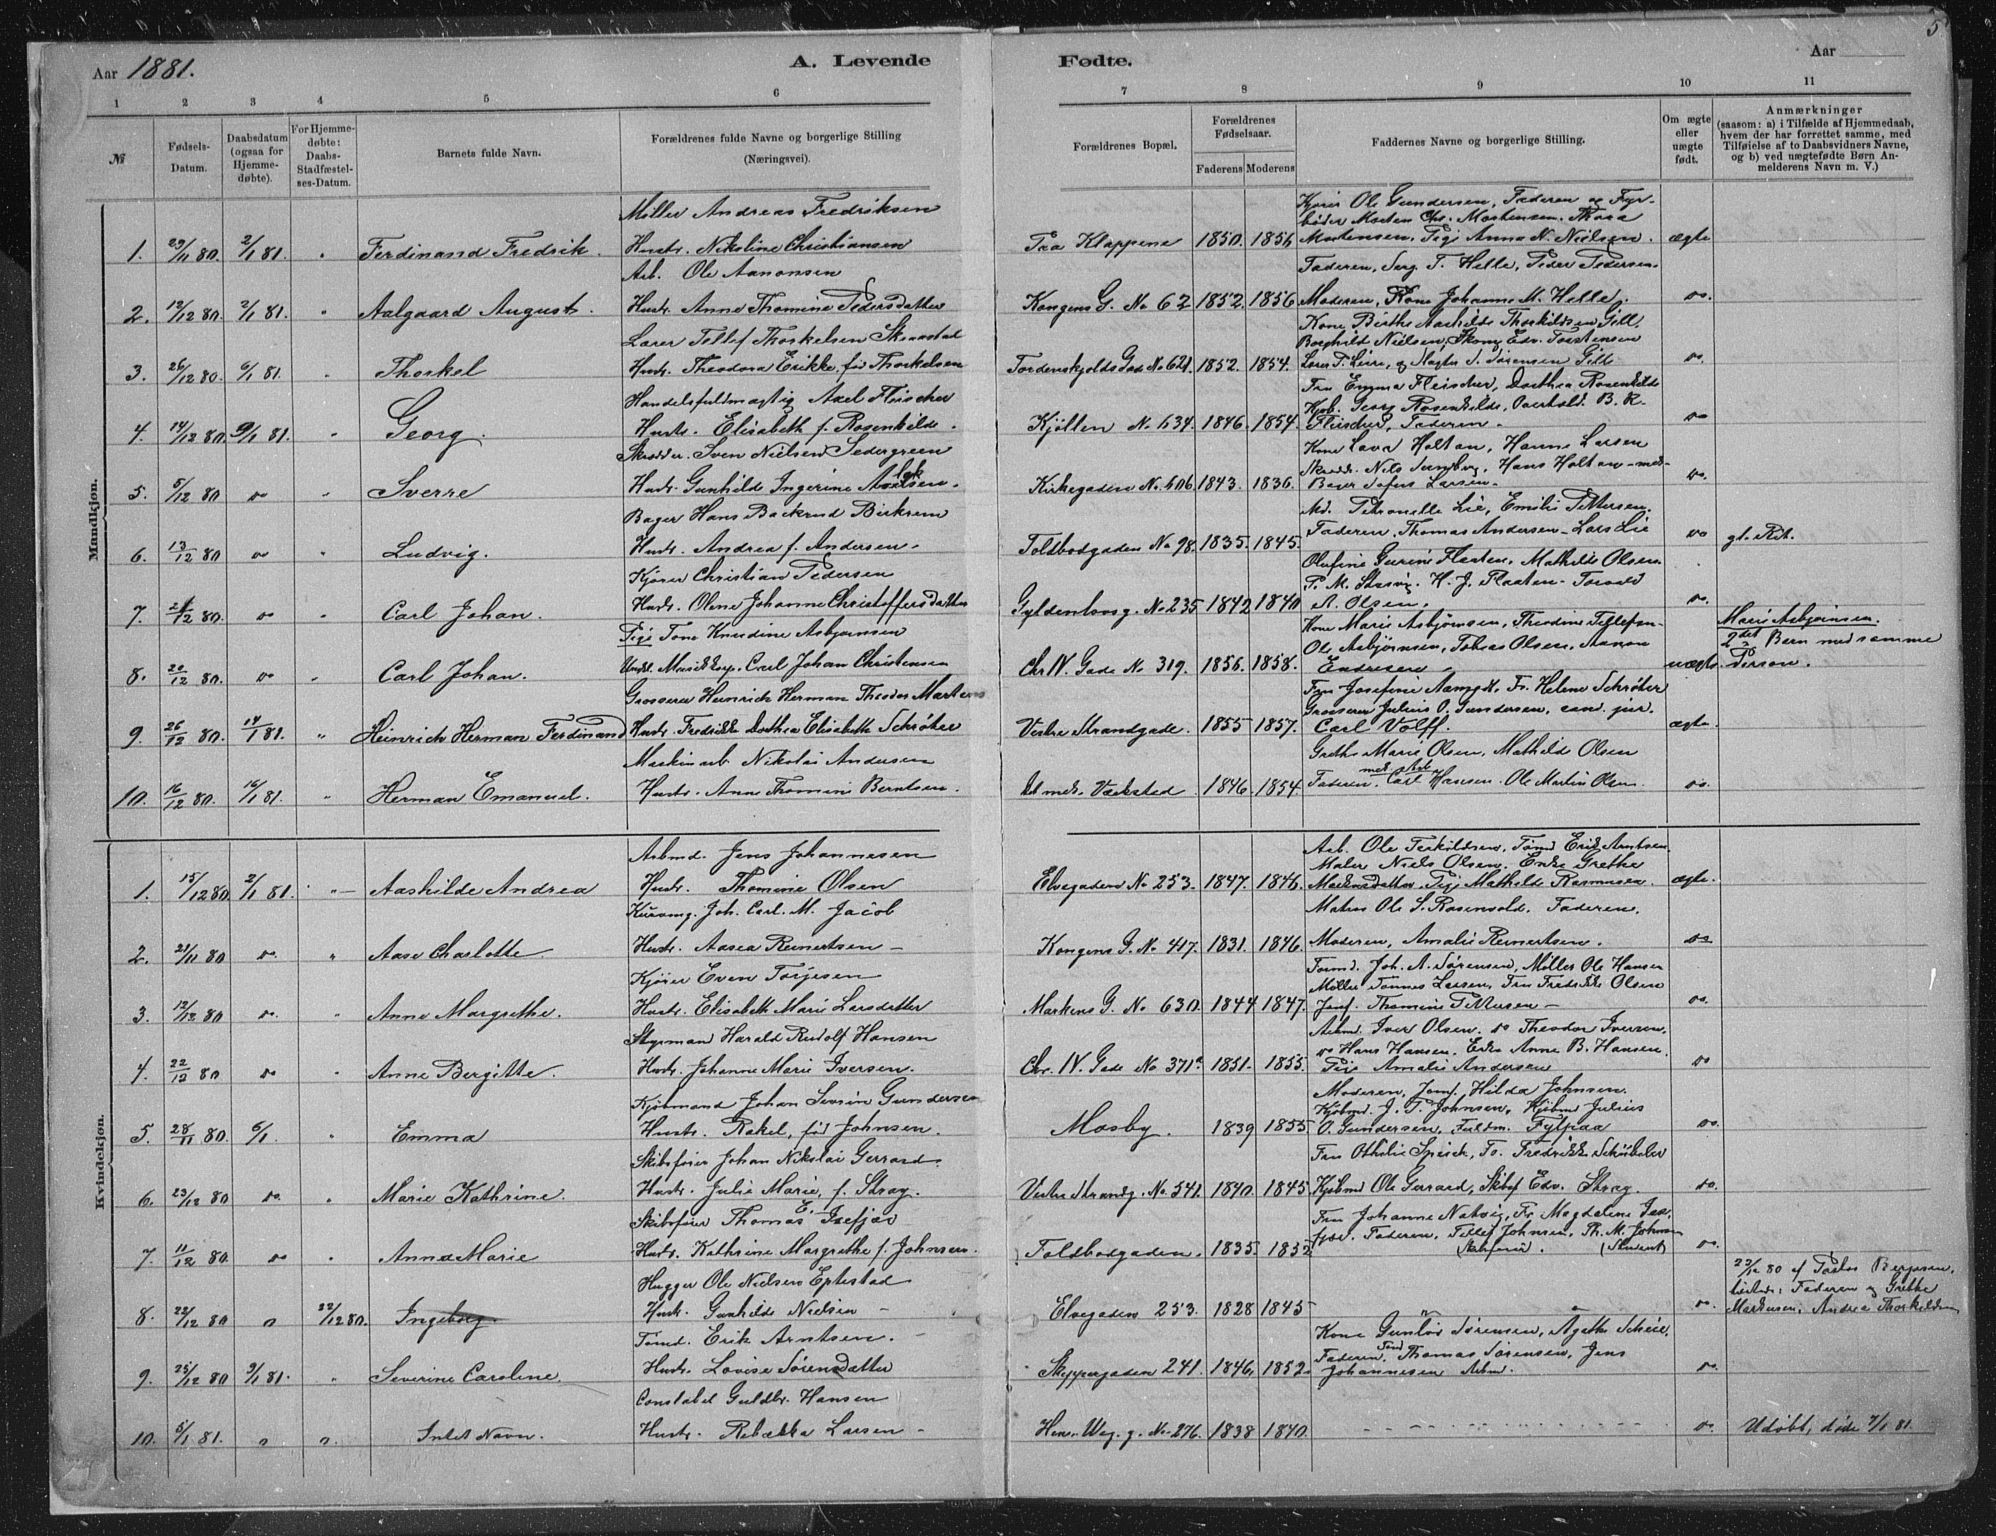 5
Aar 1881.
A. Levende
Fødte.
Aar
1 2 3 4 5 6 7 8 9 10 11
№
Fødsels-Datum.
Daabsdatum (ogsaa for Hjemme-døbte).
For Hjemme-døbte: Daabs-Stadfæstel-ses-Datum.
Barnets fulde Navn.
Forældrenes fulde Navne og borgerlige Stilling (Næringsvei).
Forældrenes Bopæl.
Forældrenes Fødselsaar.
Faderens Moderens
Faddernes Navne og borgerlige Stilling.
Om ægte eller uægte født.
Anmærkninger (saasom: a) i Tilfælde af Hjemmedaab, hvem der har forrettet samme, med Tilføielse af to Daabsvidners Navne, og b) ved uægtefødte Børn An-melderens Navn m. V.)
Mandkjøn.
Møller Andreas Fredriksen
Kjører Ole Gundersen, Faderen og Fyr-
bøder Morten Chr. Mortensen. Thora
1. 29/11 80. 2/1 81. " Ferdinand Fredrik. Hustr. Nikoline Christiansen Fra Klappene 1850. 1856 Mortensen, Pige Anna N. Nielsen. ægte
Arb. Ole Aanonsen
Faderen, Serg. T. Helle, Peder Pedersen.
2. 12/12 80. 2/1 81. " Aalgaard August. Hustr. Anne Thomine Pedersdatter Kongens G. No 62 1852. 1856 Moderen, Kone Johanne M. Helle. do.
Lærer Tollef Thorkelsen
Kone Birthe Mathilde Thorkildsen Gill.
Borghild Nielsen, Skomg. Edv. Torstensen
3. 26/12 80. 6/1 81. " Thorkel Hustr. Theodora Erikke, fød Thorkelsen Tordenskjolds Gade No 621. 1852. 1854.
Handelsfuldmægtig Axel Fleischer
Fru Emma Fleischer, Dorthea Rosenkilde
Kjøb. Georg Rosenkilde, B. R.
4. 14/12 80. 9/1 81. " Georg. Hustr. Elisabeth f. Rosenkilde. Kjølten No 634. 1846. 1854. Fleischer, Faderen. do
Skrædder. Sven Nielsen Sedergreen
Kone Lava Holtan, Hanne Larsen
Nils Sundby, Hans Holtan
5. 5/12 80 do " Sverre Hustr. Gunhilde Ingerine Kirkegaden No. 606 1843. 1836. Larsen. do.
Bager Hans Backrud Birkrem
Md. Petronelle Lie, Emilie Pettersen.
6. 13/12 80 do " Ludvig. Hustr. Andrea f. Andersen. Toldbodgaden No 98. 1835. 1845. Faderen, Thomas Andersen - Lars Lie do gt. Rit.
Kjører Christian Pedersen
Olufine Gurine Flaaten, Mathilde Olsen.
H. J. Flaaten
7. 21/12 80. do " Carl Johan. Hustr. Olene Johanne Christoffersdatter Gyldenløvesg. No 235 1842 1840 A. Olsen. do.
Pige Tone Knudine Asbjørnsen
Kone Marie Asbjørnsen, Thodine Tellefsen
Marie Asbjørnsen.
Ole Asbjørnsen, Tobias Olsen, Aanon
2det Barn med samme
8. 20/12 80. do " Carl Johan. Carl Johan Christensen Chr. IV. Gade No. 319. 1856. 1858. Endresen. uægte. Person.
Grosserer Heinrich Herman Theodor Martens
Fru Josefine Aamodt, Fr. Helene Schrøter
Grosserer Julius O. Gundersen, cand. jur.
9. 26/12 80. 14/1 81. " Heinrich Herman Ferdinand Hustr. Fredrikke Dorthea Elisabeth Schrøter Vestre Strandgade. 1855 1857. Carl Wolff. ægte.
Maskinarb Nikolai Andersen
Grethe Marie Olsen, Mathilde Olsen
10. 16/12 80. 16/1 81. " Herman Emanuel. Hustr. Anne Thomine Berntsen. Værksted 1846. 1854. Faderen. Carl Hansen. Ole Martin Olsen do.
Kvindekjøn.
Arbmd. Jens Johannesen
Arb. Ole Terkildsen, Tømd Erik Arntsen.
Maler Niels Olsen. Enke Grethe
1. 15/12 80 2/1 81. " Aashilde Andrea Hustr. Thomine Olsen Elvegaden No 253. 1847. 1846. Pige Mathilde Rasmussen. ægte.
Kurvmg. Joh. Carl. M. Jacob
Matros Ole S. Rosenvold. Faderen.
2. 21/11 80 do. " Aase Charlotte Hustr. Aasea Reinertsen Kongens G. No 417. 1831. 1846. Moderen, Amalie Reinertsen. do
Kjører Even Torjesen
Tømd. Joh. A. Sørensen, Møller Ole Hansen
Møller Tønnes Larsen, Fru Fredrikke Olsen
3. 12/12 80 do. " Anne Margrethe. Hustr. Elisabeth Marie Larsdatter Markens G. No 630. 1844 1847. Jomf. Thomine Pettersen do.
Styrmand Harald Rudolf Hansen
Arbmd. Iver Olsen. do Theodor Iversen.
do Hans Hansen. Enke Anne B. Hansen.
4. 22/12 80 do " Anne Bergitte. Hustr. Johanne Marie Iversen. Chr. IV. Gade No 371a 1851. 1855. Pige Amalie Andersen do
Kjøbmand Johan Severin Gundersen
Moderen, Jomf. Hilda Johnsen.
Kjøbmd. J. T. Johnsen, Kjøbmd Julius
5. 28/11 80. 6/1. " Emma Hustr. Rakel, fød Johnsen. Mosby. 1839 1855 O. Gundersen, Fuldm. do.
Skibsfører Johan Nikolai Gerrard.
Fru Othilie Fr. Fredrikke
6. 23/12 80. do. " Marie Kathrine. Hustr. Julie Marie, f. Stray. Vestre Strandg. No. 541. 1840. 1845 Kjøbmd Ole Gerrard, Skibsf Edv. Stray. do.
Skibsfører Thomas E. Isefjær
Fru Johanne Natvig, Fr. Magdalene Ise-
7. 11/12 80 do " Anna Marie Hustr. Kathrine Margrethe f. Johnsen. Toldbodgaden. 1835. 1852 fjær. Faderen. Tellef Johnsen, Th. M. Johnsen (Student) do.
Hugger Ole Nielsen Eptestad
22/12 80 af Pastor
Faderen og Grethe
8. 22/12 80 " 22/12 80. Ingeborg Hustr. Gunhilde Nielsen Elvegaden 253. 1828 1845 " " do. Martensen, Andrea Thorkildsen
Tømd. Erik Arntsen.
Kone Gunløv Sørensen, Agathe Scheie.
Faderen, Tømd Thomas Sørensen, Jens
9. 25/12 80 9/1 81. " Severine Caroline. Hustr. Lovise Sørensdatter Skippergaden 241. 1846. 1852. Johannesen Arbm. do.
Constabel Guldbr. Hansen
10. 5/1 81. " " Intet Navn. Hustr. Rebækka Larsen Hen. Werg. g. No 276. 1838 1840. do. Udøbt, døde 7/1 81.